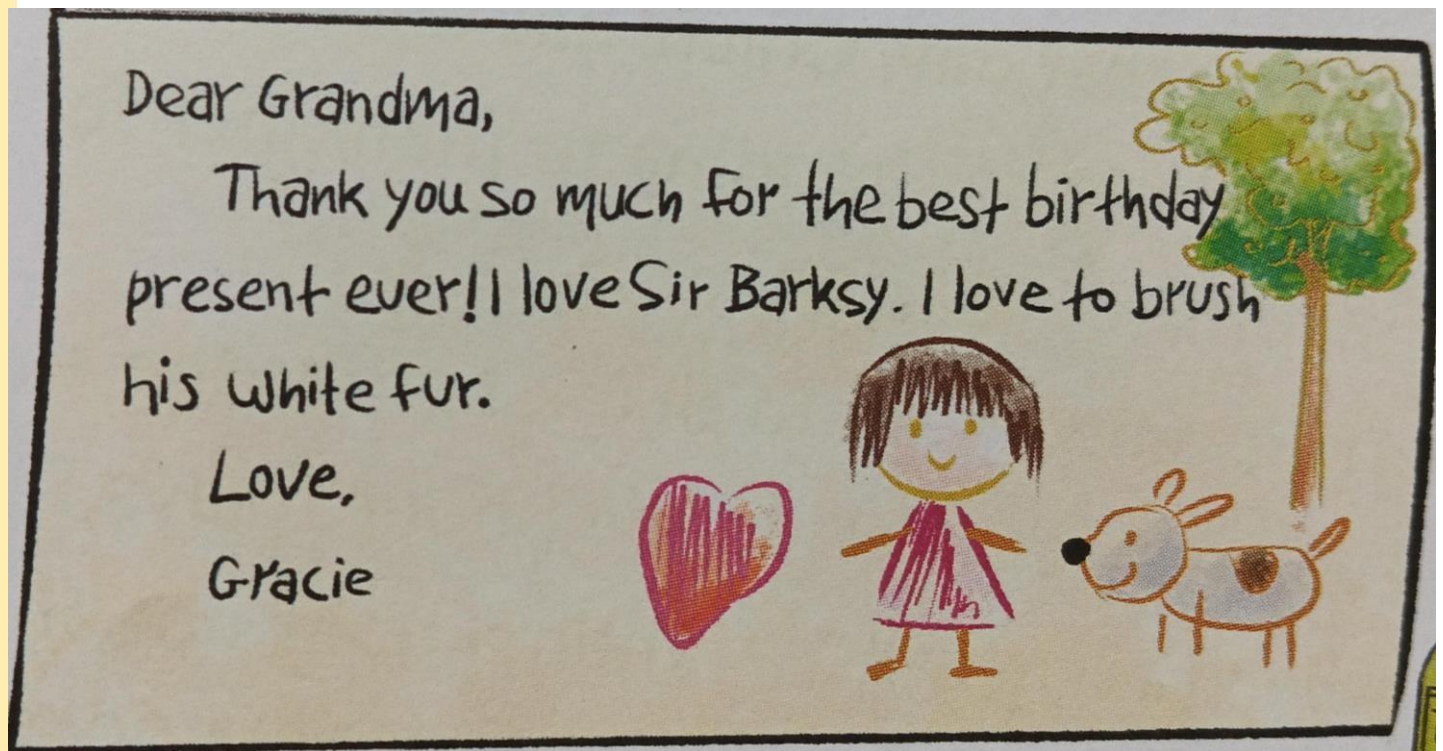 Dear Grandma,
Thank you so much for the best birthday
present ever! I love Sir Barksy. I love to brush
his white fur.
Love,
Gracie